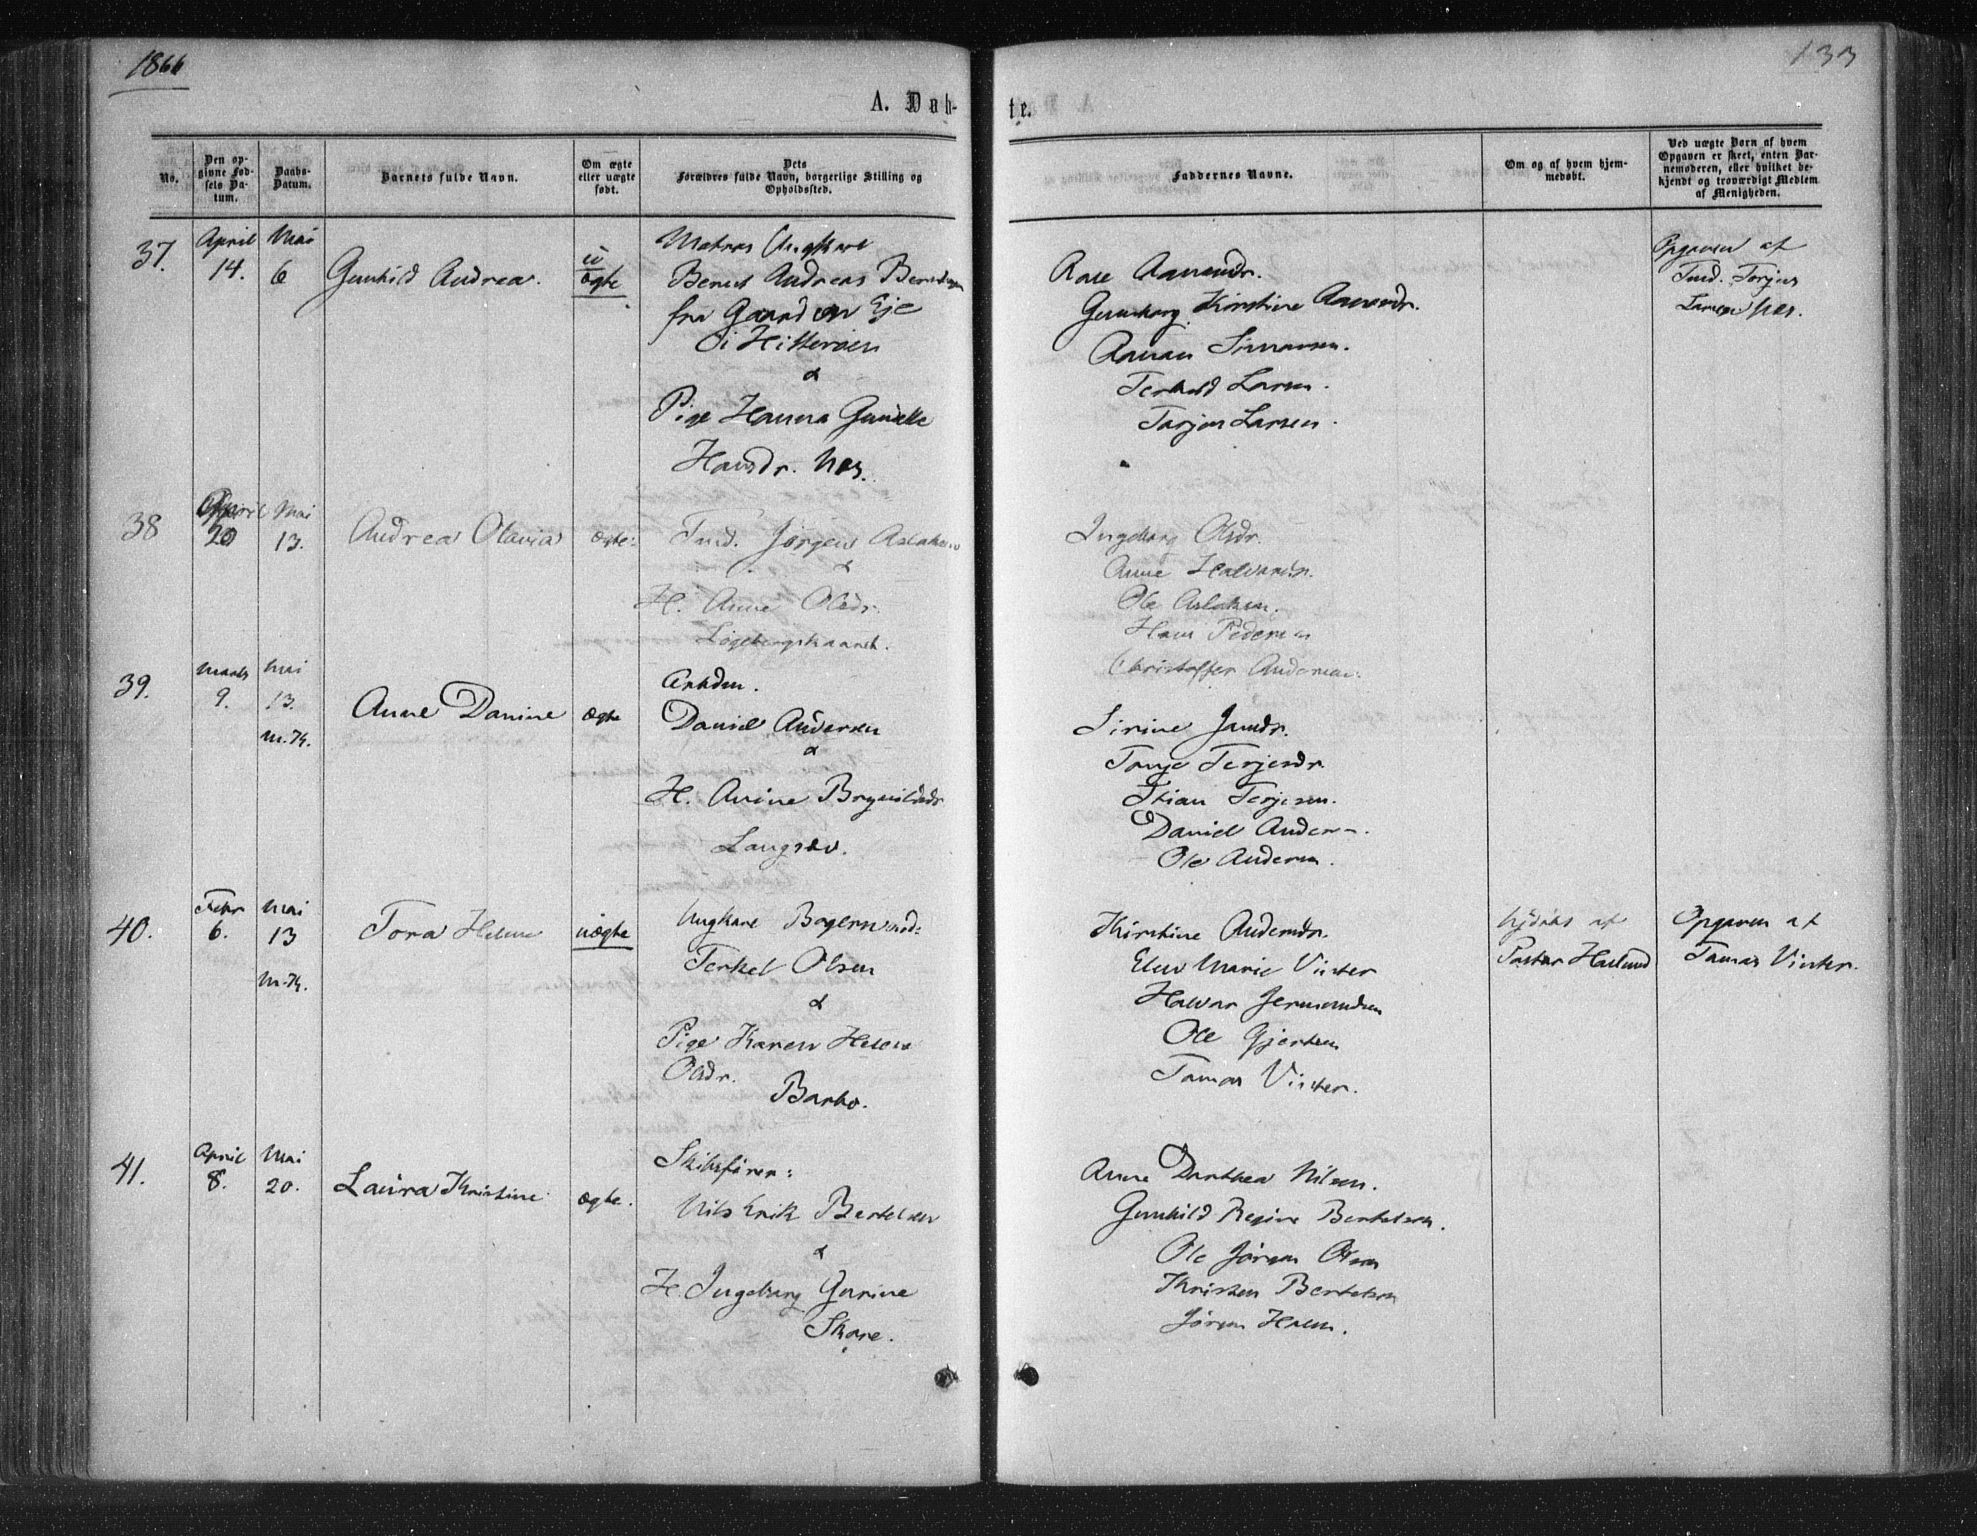 1866
133
A. Døb-
te.
No.
Den op-
givne Fød-
sels Da-
tum.
Daabs-
Datum.
Barnets fulde Navn.
Om ægte
eller uægte
født.
Dets
Forældres fulde Navn, borgerlige Stilling og
Opholdssted.
Faddernes Navne.
Om og af hvem hjem-
medøbt.
Ved uægte Børn af hvem
Opgaven er skeet, enten Bar-
nemoderen, eller hvilket be-
kjendt og troværdigt Medlem
af Menigheden.
37.
April
14.
Mai
6
Gunhild Andrea.
u
ægte
Matros Ungkarl
Bernt Andreas
fra Gaarden Eje
i Hitterøen
&
Pige Hanna Gunille
Hansdr. Nes.
Gunborg Kirstine
Larsen.
Tarjen Larsen.
Opgaven af
Larsen Nes.
38
April
20
Mai
13.
Andrea Olavia
ægte:
Jørgen Aslaksen
&
H. Anne Olsdr.
Ingeborg Olsdr.
Anne Halvorsdr.
Ole Aslaksen.
Hans Pedersen
Christoffer Andersen.
39.
Marts
9.
Mai
13.
m. K.
Anne Danine
ægte
Arbdm.
Daniel Andersen
&
H. Anine Brynildsdr
Langsev.
Sirine Jansdr.
Tonje Terjesdr.
Stian Terjesen.
Daniel Anders-.
Ole Andersen.
40.
Febr
6.
Mai
13
m. K.
Tora Helene
uægte
Ungkarl
Terkel Olsen
&
Pige Karen Helene
Olsdr.
Barbo.
Kirstine Andersdr.
Elen Marie Vinter
Halvor
Ole Gjertsen
Tomas Vinter.
hjdøbt af
Pastor Haslund
Opgaven af
Tomas Vinter.
41.
April
8.
Mai
20.
Laura Kristine
ægte.
Skibsfører:
Nils Erik Bertelsen
&
H. Ingeborg Gurine
Skare.
Anne Dorthea Nilsen.
Gunhild Regine Bertelsen.
Ole Jørgen Olsen
Kristen Bertelsen
Jørgen